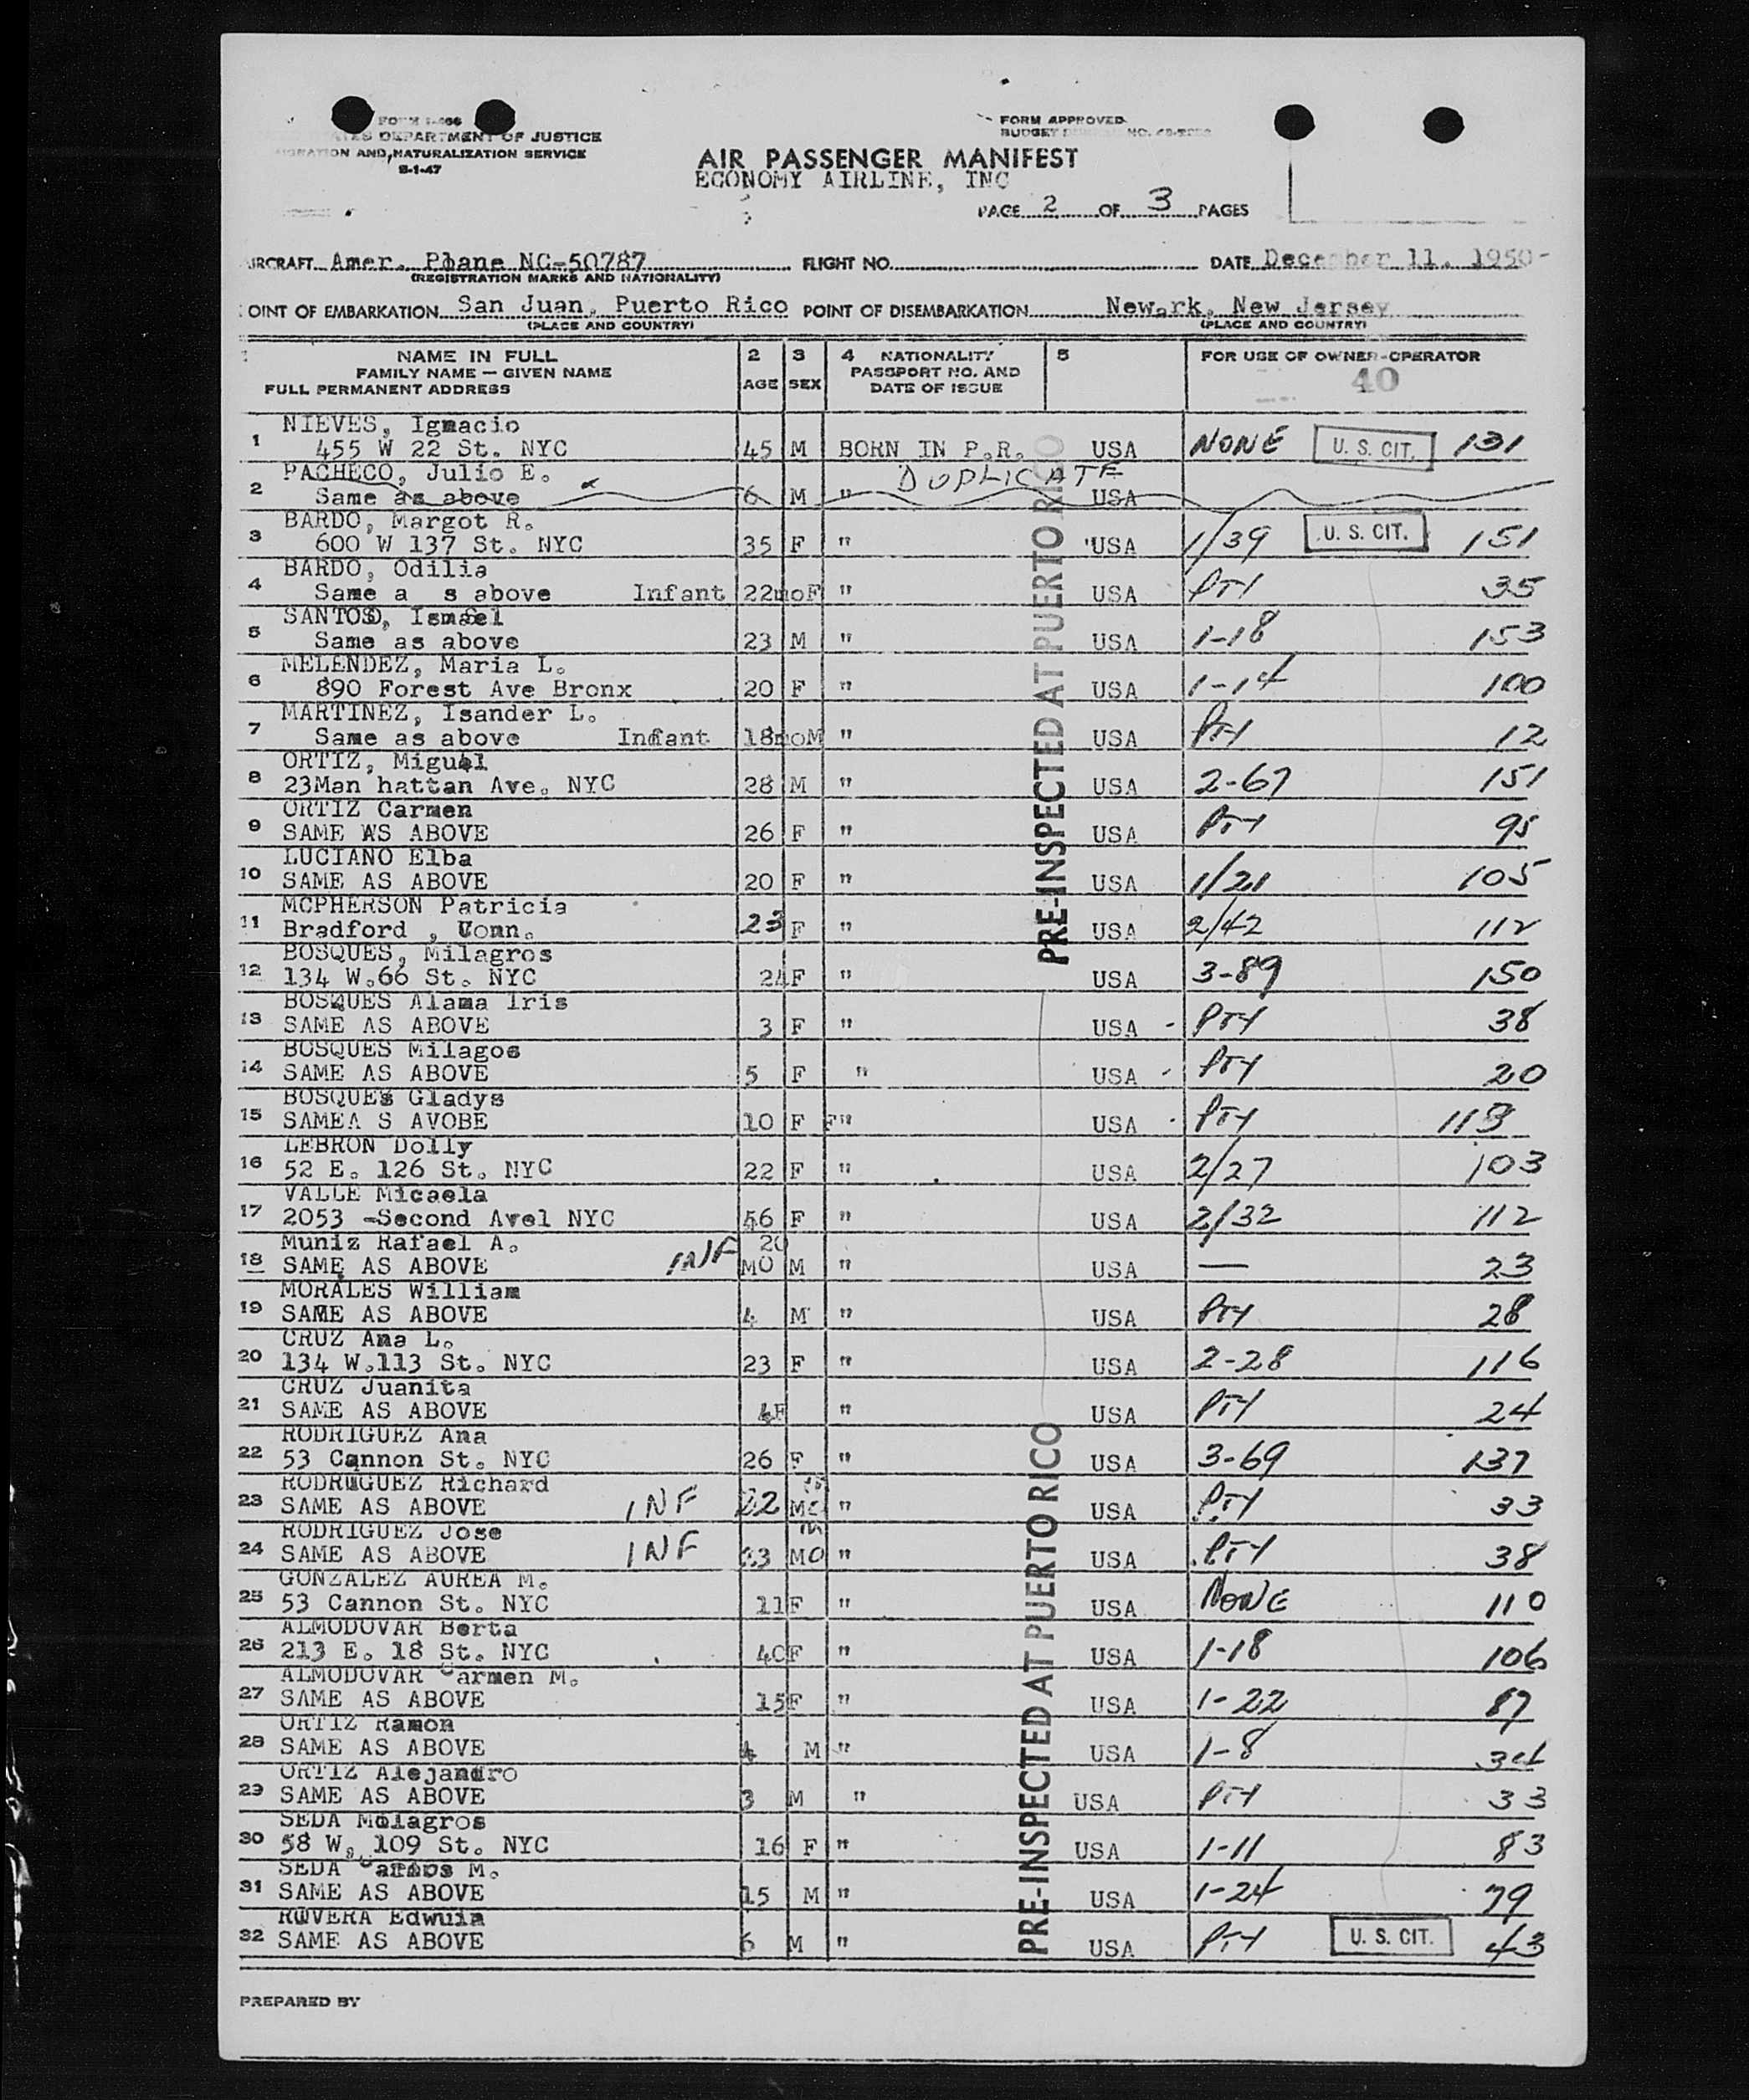 FORM I-466
DEPARTMENT OF JUSTICE
AND NATURALIZATION SERVICE
8-1-47
FORM APPROVED
BUDGET NO.
AIR PASSENGER MANIFEST
ECONOMY AIRLINE, INC
PAGE 2 OF 3 PAGES
IRCRAFT Amer. Plane NC-50787 FLIGHT NO. DATE December 11, 1950
(REGISTRATION MARKS AND NATIONALITY)
OINT OF EMBARKATION San Juan, Puerto Rico POINT OF DISEMBARKATION Newark, New Jersey
(PLACE AND COUNTRY) (PLACE AND COUNTRY)
NAME IN FULL 2 3 4 NATIONALITY 5 FOR USE OF OWNER-OPERATOR
FAMILY NAME — GIVEN NAME PASSPORT NO. AND
FULL PERMANENT ADDRESS AGE SEX DATE OF ISSUE 40
NIEVES, Ignacio
1 455 W 22 St. NYC 45 M BORN IN P.R. USA NONE U. S. CIT. 131
PACHECO, Julio E. DUPLICATE
2 Same as above 6 M " USA
BARDO, Margot R.
3 600 W 137 St. NYC 35 F " USA 1/39 U. S. CIT. 151
BARDO, Odilia
4 Same a s above Infant 22moF " USA PTY 35
SANTOS, Ismael
5 Same as above 23 M " USA 1-18 153
MELENDEZ, Maria L.
6 890 Forest Ave Bronx 20 F " USA 1-14 100
MARTINEZ, Isander L.
7 Same as above Infant 18moM " USA PTY 12
ORTIZ, Miguel
8 23Man hattan Ave. NYC 28 M " USA 2-67 151
ORTIZ Carmen
9 SAME AS ABOVE 26 F " USA PTY 95
LUCIANO Elba
10 SAME AS ABOVE 20 F " USA 1/21 105
MCPHERSON Patricia
11 Bradford , Conn. 23 F " USA 2/42 112
BOSQUES, Milagros
12 134 W.66 St. NYC 24F " USA 3-89 150
BOSQUES Alama Iris
13 SAME AS ABOVE 3 F " USA - PTY 38
BOSQUES Milagos
14 SAME AS ABOVE 5 F " USA - PTY 20
BOSQUES Gladys
15 SAMEA S AVOBE 10 F F" USA - PTY 113
LEBRON Dolly
16 52 E. 126 St. NYC 22 F " USA 2/27 103
VALLE Micaela
17 2053 -Second Avel NYC 56 F " USA 2/32 112
Muniz Rafael A. INF 20
18 SAME AS ABOVE MO M " USA — 23
MORALES William
19 SAME AS ABOVE 4 M " USA PTY 28
CRUZ Ana L.
20 134 W.113 St. NYC 23 F " USA 2-28 116
CRUZ Juanita
21 SAME AS ABOVE 4F " USA PTY 24
RODRIGUEZ Ana
22 53 Cannon St. NYC 26 F " USA 3-69 137
RODRIGUEZ Richard
23 SAME AS ABOVE INF 22 MO " USA PTY 33
RODRIGUEZ Jose M
24 SAME AS ABOVE INF 33 MO " USA PTY 38
GONZALEZ AUREA M.
25 53 Cannon St. NYC 11F " USA NONE 110
ALMODOVAR Berta
26 213 E. 18 St. NYC 40F " USA 1-18 106
ALMODOVAR Carmen M.
27 SAME AS ABOVE 15F " USA 1-22 87
ORTIZ Ramon
28 SAME AS ABOVE 4 M " USA 1-8 34
ORTIZ Alejandro
29 SAME AS ABOVE 3 M " USA PTY 33
SEDA Milagros
30 58 W. 109 St. NYC 16 F " USA 1-11 83
SEDA Carlos M.
31 SAME AS ABOVE 15 M " USA 1-24 79
RIVERA Edwuia
32 SAME AS ABOVE 6 M " USA PTY U. S. CIT. 43
PRE-INSPECTED AT PUERTO RICO
PRE-INSPECTED AT PUERTO RICO
PREPARED BY